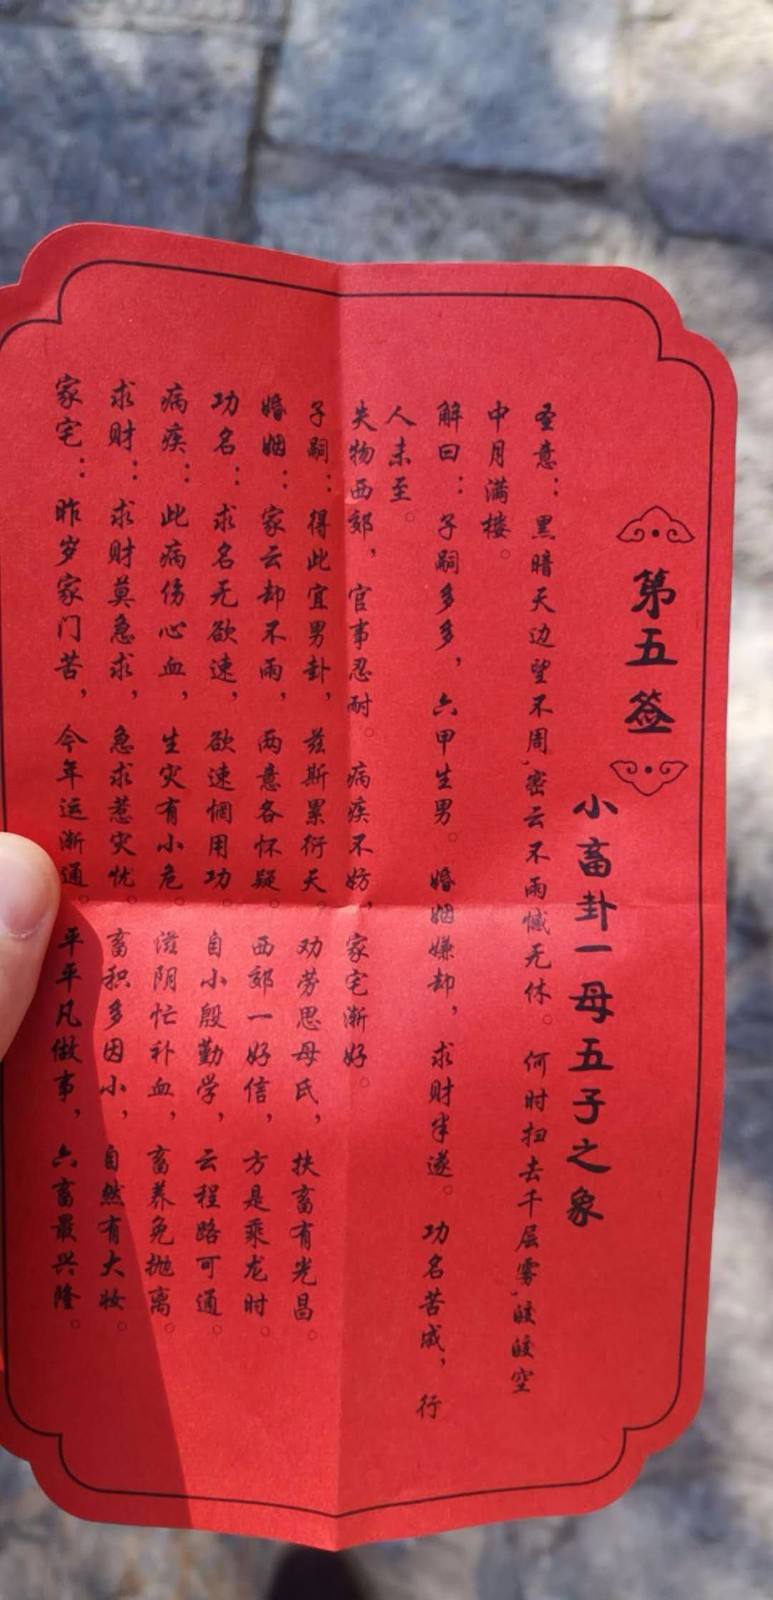 第五签
小畜卦一母五子之象
圣意：黑暗天边望不周，密云不雨憾无休。何时扫去千层雾，皎皎空
中月满楼。
解曰：子嗣多多，六甲生男。婚姻嫌却，求财半遂。功名苦成，行
人未至。
失物西郊，官事忍耐。病疾不妨，家宅渐好。
子嗣：得此宜男卦，兹斯累衍天。劝劳思母氏，扶畜有光昌。
婚姻：家云却不雨，两意各怀疑。西郊一好信，方是乘龙时。
功名：求名无欲速，欲速惘用功。自小殷勤学，云程路可通。
病疾：此病伤心血，生灾有小危。滋阴忙补血，畜养免抛离。
求财：求财莫急求，急求惹灾忧。畜积多因小，自然有大妆。
家宅：昨岁家门苦，今年运渐通。平平凡做事，六畜最兴隆。